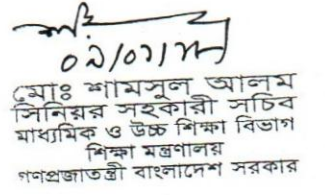 মোঃ শামসুল আলম
সিনিয়র সহকারী সচিব
মাধ্যমিক ও উচ্চ শিক্ষা বিভাগ
শিক্ষা মন্ত্রণালয়
গণপ্রজাতন্ত্রী বাংলাদেশ সরকার